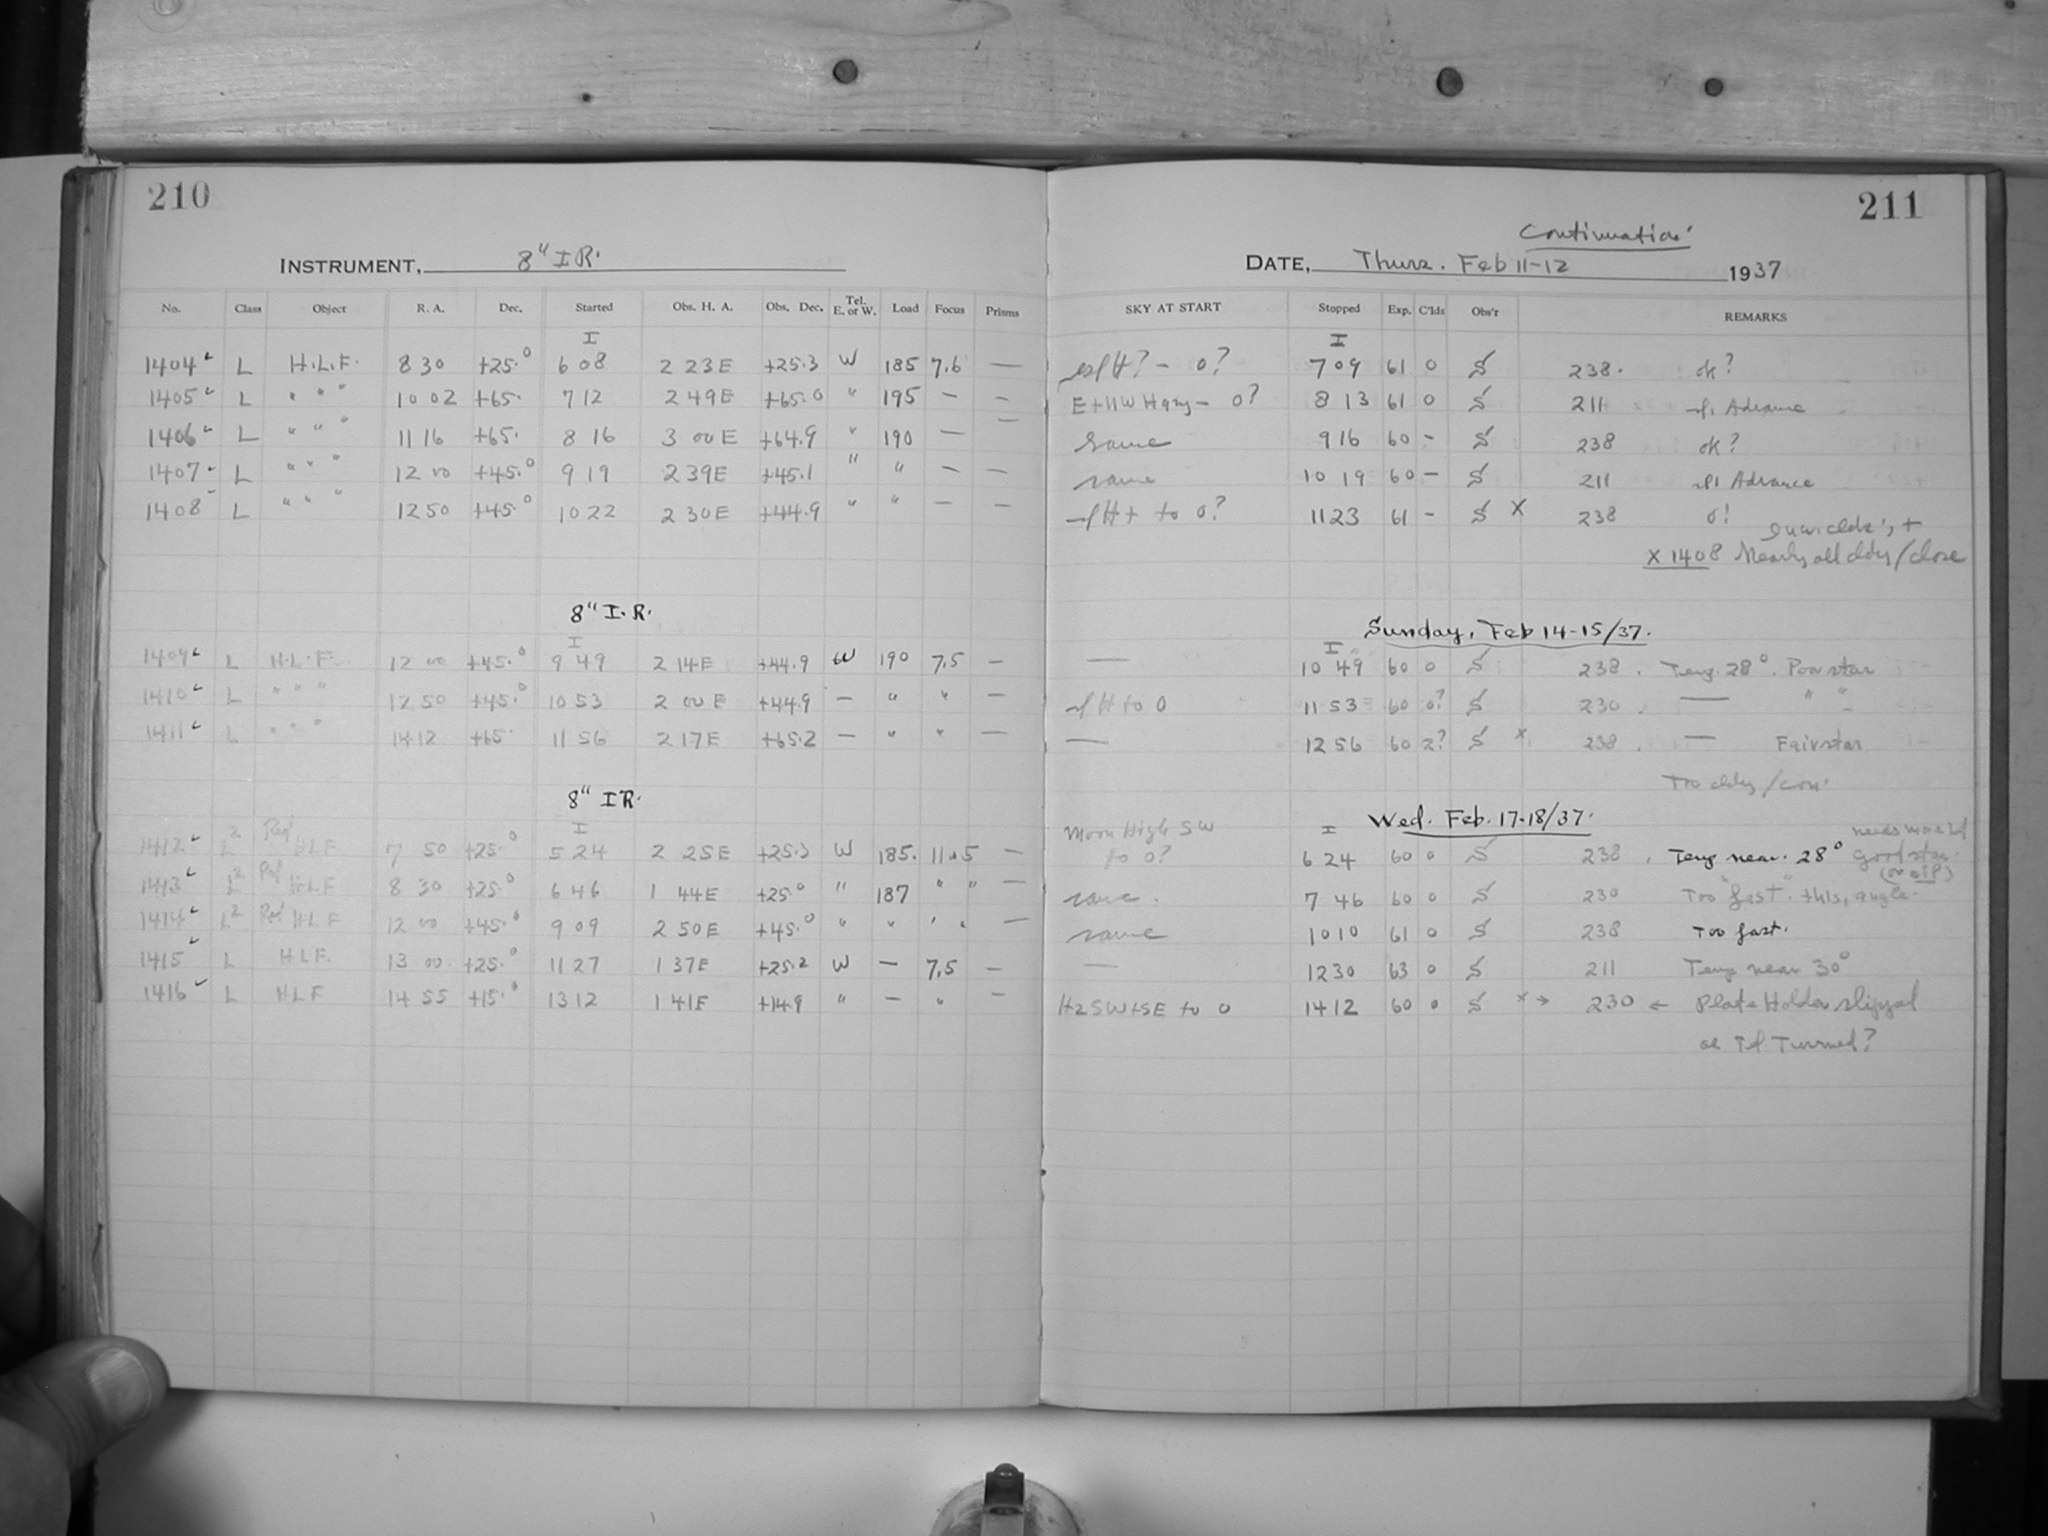 210
INSTRUMENT, 8" I R.
No. Class Object R. A. Dec. Started Obs. H. A. Obs. Dec. Tel. E. or W. Load Focus Prisms
I
1404 L H.L.F. 8 30 +25.0 6 08 2 23 E +25.3 W 185 7.6 —
1405 L " " " 10 02 +65. 7 12 2 49 E +65.0 " 195 — —
1406 L " " " 11 16 +65. 8 16 3 00 E +64.9 " 190 — —
1407 L " " " 12 00 +45.0 9 19 2 39 E +45.1 " " — —
1408 L " " " 12 50 +45.0 10 22 2 30 E +44.9 " " — —
8" I. R.
I
1409 L H.L.F. 12 00 +45.0 9 49 2 14 E +44.9 W 190 7.5 —
1410 L " " " 12 50 +45.0 10 53 2 00 E +44.9 — " " —
1411 L " " " 14 12 +65 11 56 2 17 E +65.2 — " " —
8" I R.
I
1412 L2 HLF 7 50 +25.0 5 24 2 25 E +25.3 W 185. 11.5 —
1413 L2 HLF 8 30 +25.0 6 46 1 44 E +25.0 " 187 " " —
1414 L2 HLF 12 00 +45.0 9 09 2 50 E +45.0 " " " " —
1415 L HLF. 13 00 +25.0 11 27 1 37 E +25.2 W — 7.5 —
1416 L HLF 14 55 +15.0 13 12 1 41 E +14.9 " — " —
211
Continuation
DATE, Thurs. Feb 11-12 1937
SKY AT START Stopped Exp. C'lds Obs'r REMARKS
I
H? — 0? 7 09 61 0 S 238. ok?
E + NW H — 0? 8 13 61 0 S 211 Advance
same 9 16 60 — S 238 ok?
same 10 19 60 — S 211 Advance
H + to 0? 11 23 61 — S X 238 0!
X 1408 Nearly all cldy/close
Sunday, Feb 14-15/37.
I
— 10 49 60 0 S 238. Temp. 28°. Poor star
H to 0 11 53 60 0? S 230. — " "
— 12 56 60 2? S x 238. — Fair star
Too cldy/
Wed. Feb. 17-18/37.
Moon High SW
I
to 0? 6 24 60 0 S 238. Temp near 28° good star
same. 7 46 60 0 S 230 Too "fast" this, angle.
same 10 10 61 0 S 238 Too fast.
— 12 30 63 0 S 211 Temp near 30°
H2 SW + SE to 0 14 12 60 0 S x → 230 ← Plate Holder slipped
or Tel Turned?